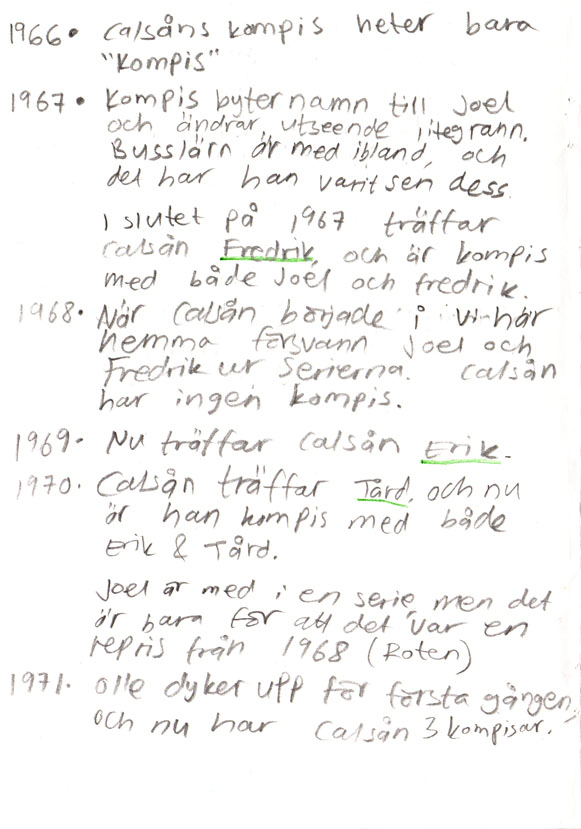 1966• Calsåns kompis heter bara
"Kompis"
1967• Kompis byter namn till Joel
och ändrar utseende litegrann.
Busslärn är med ibland, och
det har han varit sen dess.
I slutet på 1967 träffar
Calsån Fredrik, och är kompis
med både Joel och fredrik.
1968• När Calsån började i Vi-här
hemma försvann Joel och
Fredrik ur Serierna. Calsån
har ingen kompis.
1969• Nu träffar Calsån Erik.
1970• Calsån träffar Tård, och nu
är han kompis med både
Erik & Tård.
Joel är med i en serie, men det
är bara för att det var en
repris från 1968 (Roten)
1971• Olle dyker upp för första gången,
och nu har Calsån 3 kompisar.